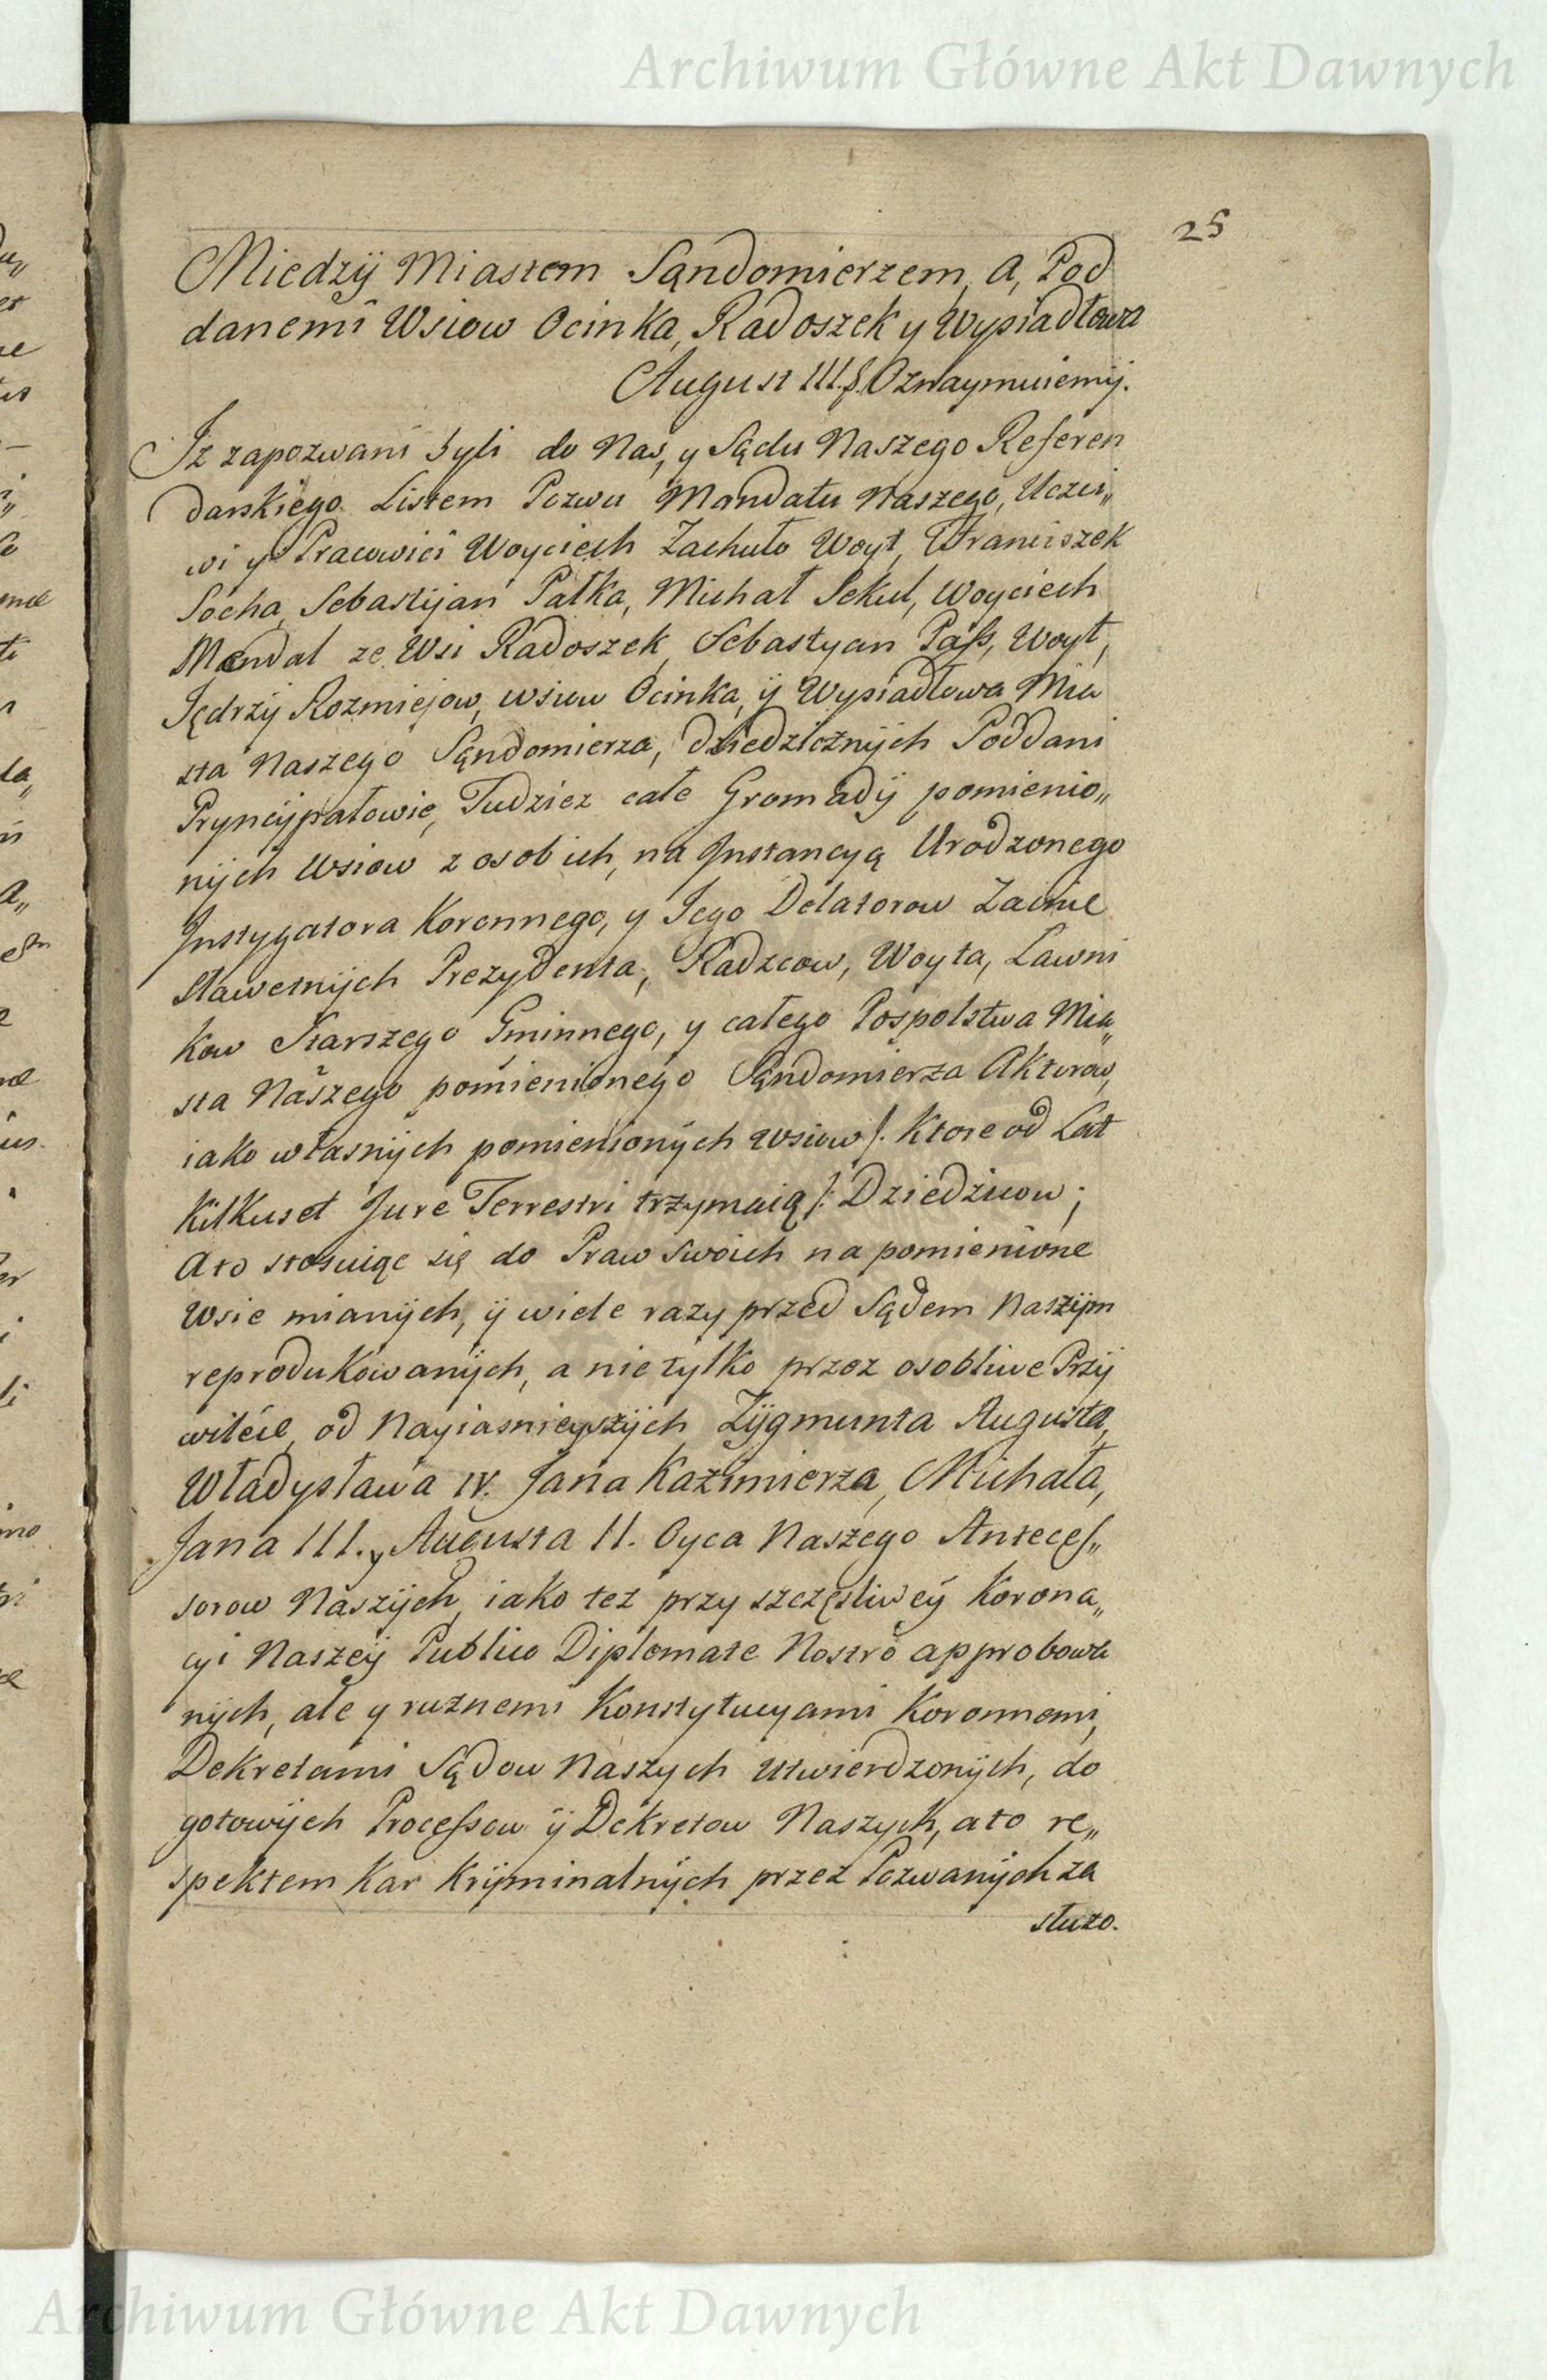 Archiwum Główne Akt Dawnych
25
Miedzÿ Miastem Sąndomierzem, a, Pod
danemi Wsiow Ocinka, Radoszek y Wypiadłowa
August III. §. Oznaymuiemÿ.
Jz zapozwani byli do Nas, y Sądu Naszego Referen
darskiego Listem Pozwu Mandatu Naszego, Uczci„
wi y Pracowici Woyciech Zachuło Woyt, Franciszek
Socha, Sebastÿan Pałka, Michał Sekul, Woyciech
Mandal ze Wsi Radoszek, Sebastyan Pass, Woyt,
Jędrzÿ Rozmiejow, wsiow Ocinka, ÿ Wypiadłowa Mia
sta Naszego Sąndomierza, dziedzicznÿch Poddani
Pryncÿpałowie, Tudziez całe Gromadÿ pomienio„
nÿch Wsiow z osob ich, na Jnstancyą Urodzonego
Jnstygatora Koronnego, y Jego Delatorow Zacnie
Sławetnÿch Prezydenta, Radzcow, Woyta, Ławni
kow Starszego Gminnego, y całego Pospolstwa Mia„
sta Naszego pomienionego Sąndomierza Aktorow,
iako własnÿch pomienionÿch Wsiow /: Ktore od Lat
Kilkuset Jure Terrestri trzymaią /: Dziedzicow;
Ato stosuiąc się do Praw swoich na pomienione
Wsie mianÿch, ÿ wiele razy przed Sądem Naszÿm
reprodukowanÿch, a nie tylko przez osobliwe Przÿ
wileie, od Nayiasnieyszÿch Zÿgmunta Augusta,
Władysława IV. Jana Kazimierza, Michała,
Jana III. y Augusta II. Oyca Naszego Anteces„
sorow Naszÿch, iako tez przy szczęsliwey Korona„
cyi Naszeÿ Publico Diplomate Nostro approbowa
nÿch, ale y ruznemi Konstytucyami Koronnemi,
Dekretami Sądow Naszych utwierdzonÿch, do
gotowÿch Processow ÿ Dekretow Naszych, ato re„
spektem Kar Krÿminalnÿch przez Pozwanÿch za
słuzo.
Archiwum Główne Akt Dawnych